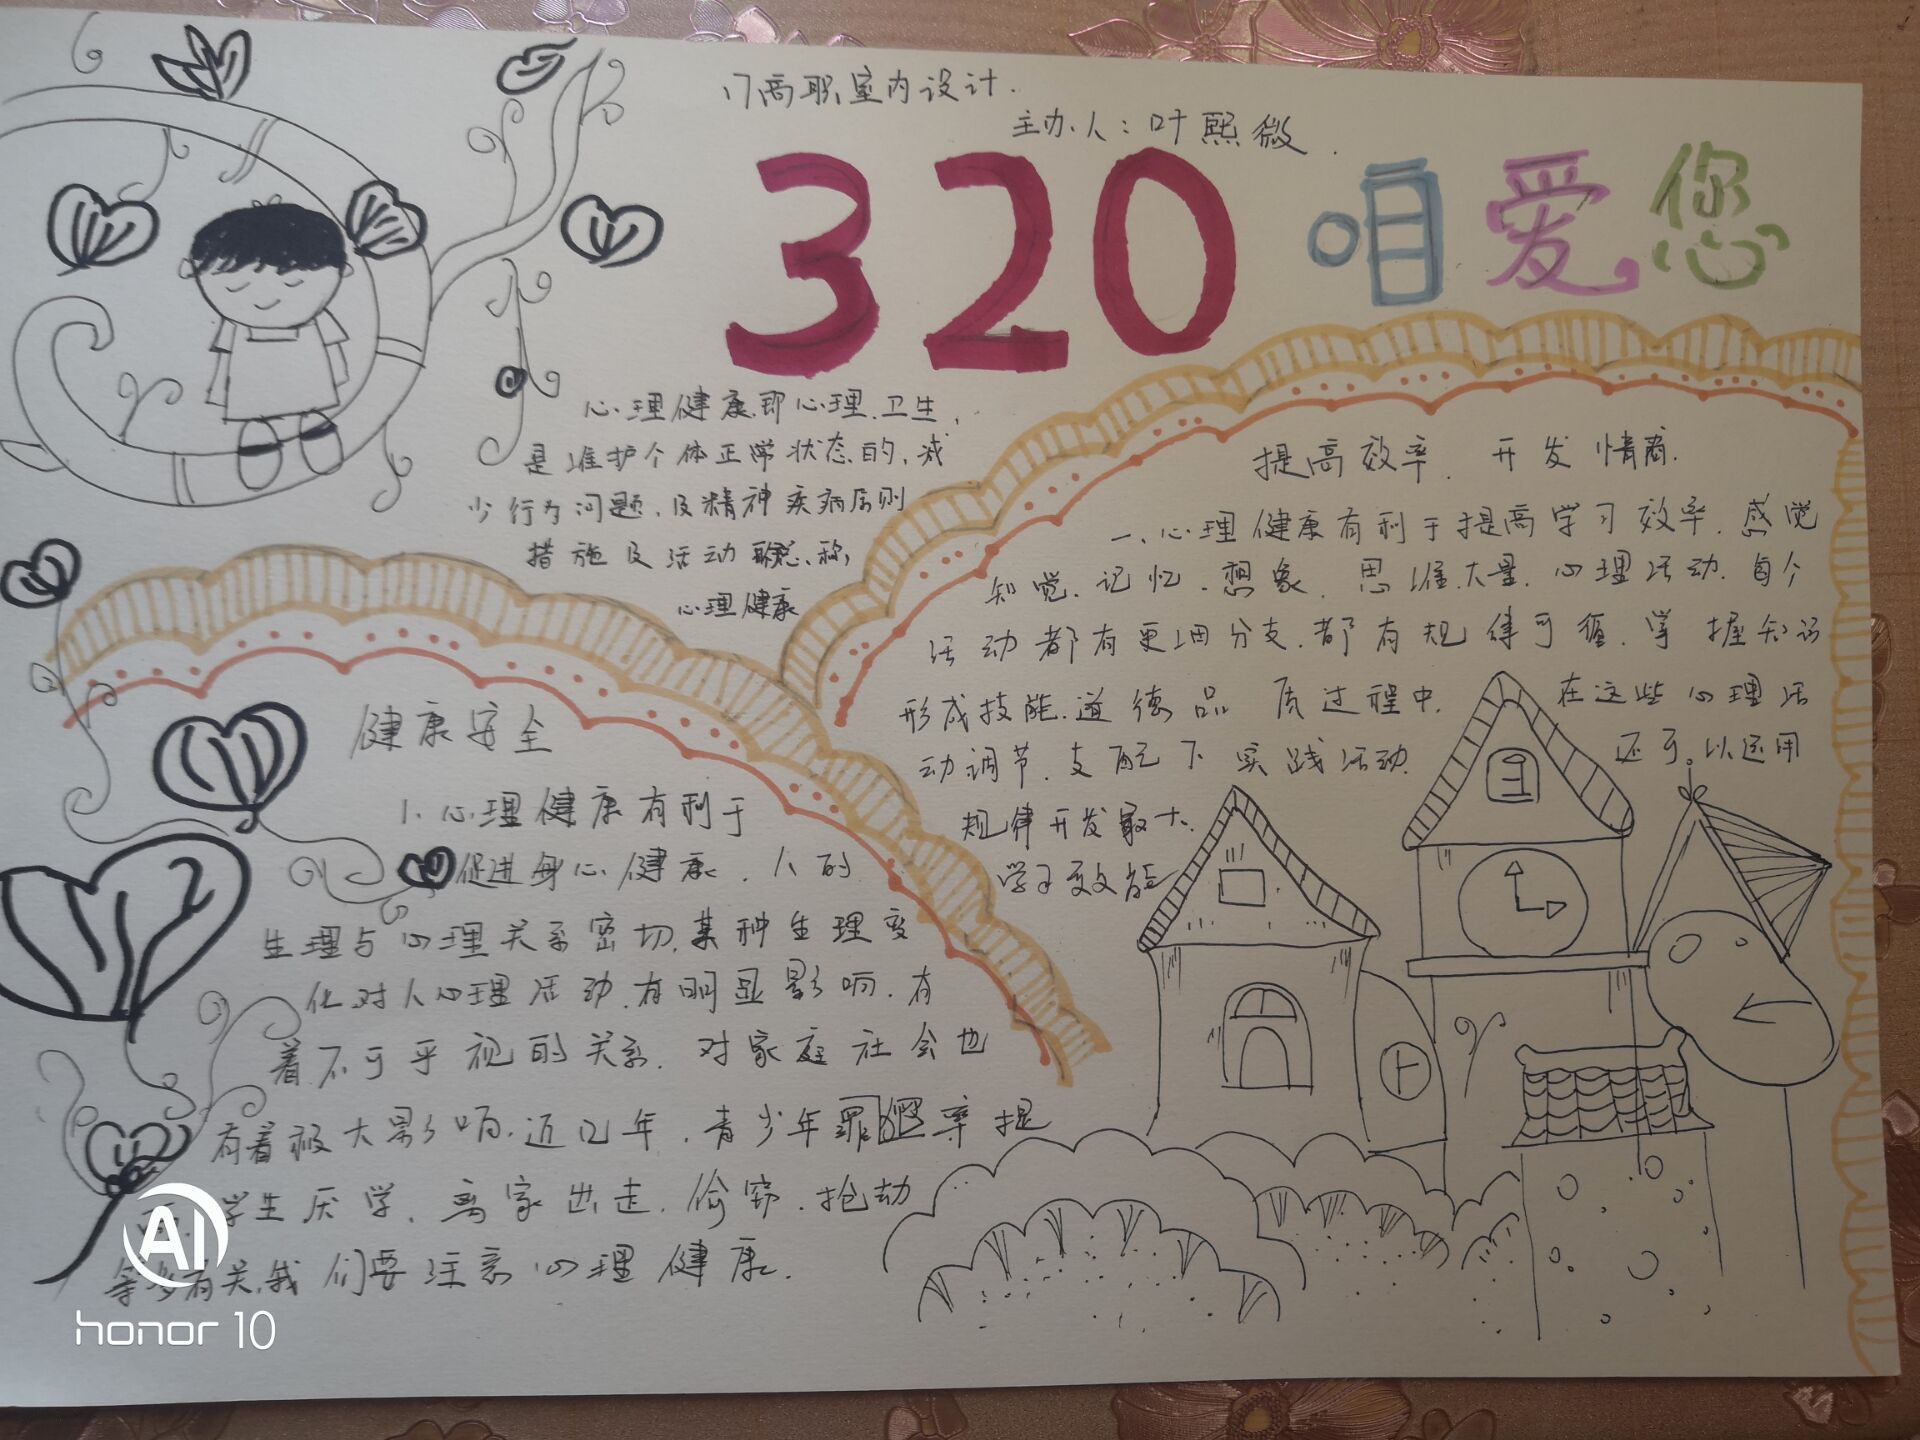 17高职室内设计.
主办人：叶熙微.
320 咱爱您
心理健康.即心理.卫生,
是维护个体正常状态的,减
少行为问题、及精神疾病原则
措施及活动 总、称,
心理健康
提高效率. 开发情商.
一、心理健康有利于提高学习效率.感觉
知觉、记忆、想象、思维.大量.心理活动.每个
活动都有更细分支.都有规律可循.掌握知识
形成技能.道德品质过程中.在这些心理活
动调节.支配下实践活动.还可以运用
规律开发最大.
学习效能
健康安全
1、心理健康有利于
促进身心健康.人的
生理与心理关系密切.某种生理变
化对人心理活动.有明显影响.有
着不可乎视的关系.对家庭社会也
有着极大影响.近几年.青少年罪 率提
高.学生厌学、离家出走.偷窃.抢劫
等多有关.我们要注意心理健康.
AI
honor 10